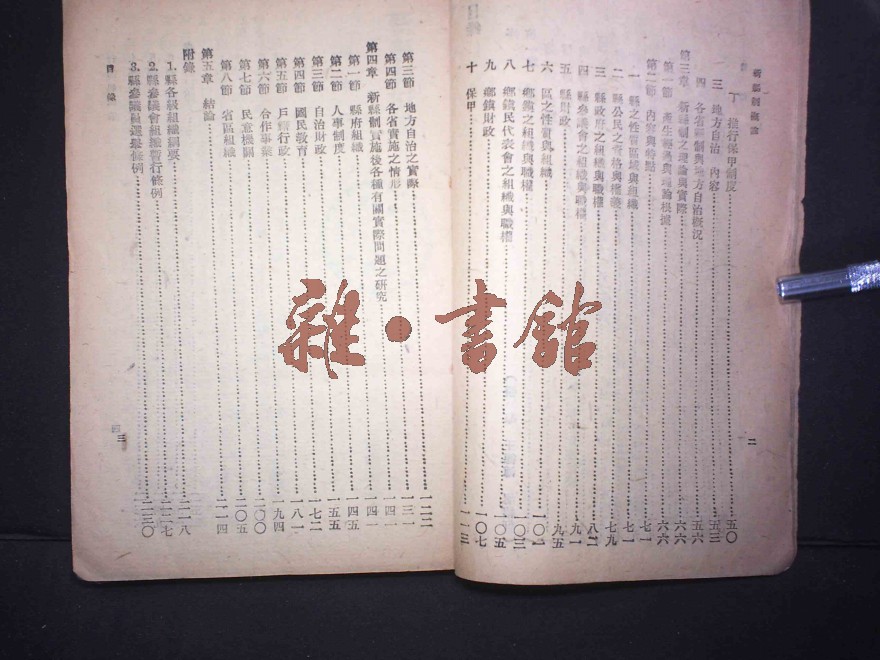 新縣制概論
丁 推行保甲制度……五〇
三 地方自治 內容……五三
四 各省縣制與地方自治概況……五六
第三章 新縣制之理論與實際……六六
第一節 產生經過與理論根據……六六
第二節 內容與特點……七一
一 縣之性質區域與組織……七一
二 縣公民之資格與權義……七九
三 縣政府之組織與職權……八二
四 縣參議會之組織與職權……九一
五 縣財政……九五
六 區之性質與組織……一〇一
七 鄉鎮之組織與職權……一〇三
八 鄉鎮民代表會之組織與職權……一〇五
九 鄉鎮財政……一〇七
十 保甲……一一三
二
第三節 地方自治之實際……一二二
第四節 各省實施之情形……一三一
第四章 新縣制實施後各種有關實際問題之研究……一四一
第一節 縣府組織……一四一
第二節 人事制度……一四五
第三節 自治財政……一五五
第四節 國民教育……一七二
第五節 戶籍行政……一八一
第六節 合作事業……一九四
第七節 民意機關……二〇〇
第八節 省區組織……二〇五
第五章 結論……二一四
附錄
1. 縣各級組織綱要……二一八
2. 縣參議會組織暫行條例……二二七
3. 縣參議員選舉條例……二三〇
目 錄
三
雜·書館